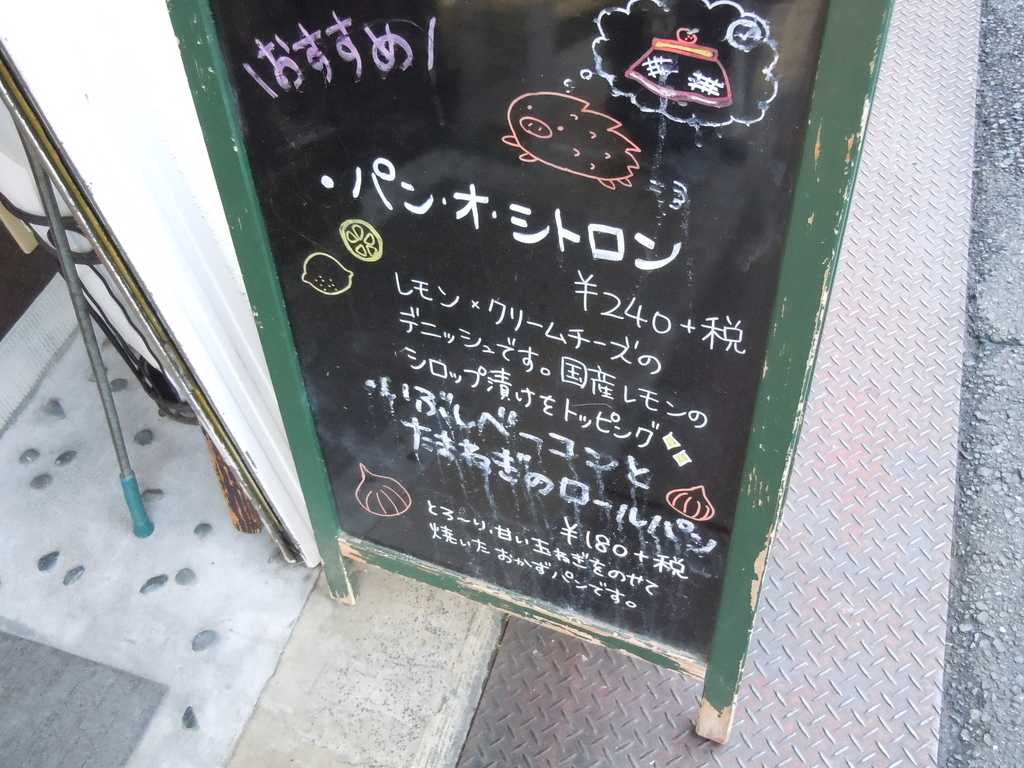 \おすすめ/
・パン・オ・シトロン
¥240+税
レモン×クリームチーズの
デニッシュです。国産レモンの
シロップ漬けをトッピング
・いぶしベーコンと
たまねぎのロールパン
¥180+税
とろ〜り甘い玉ねぎをのせて
焼いたおかずパンです。